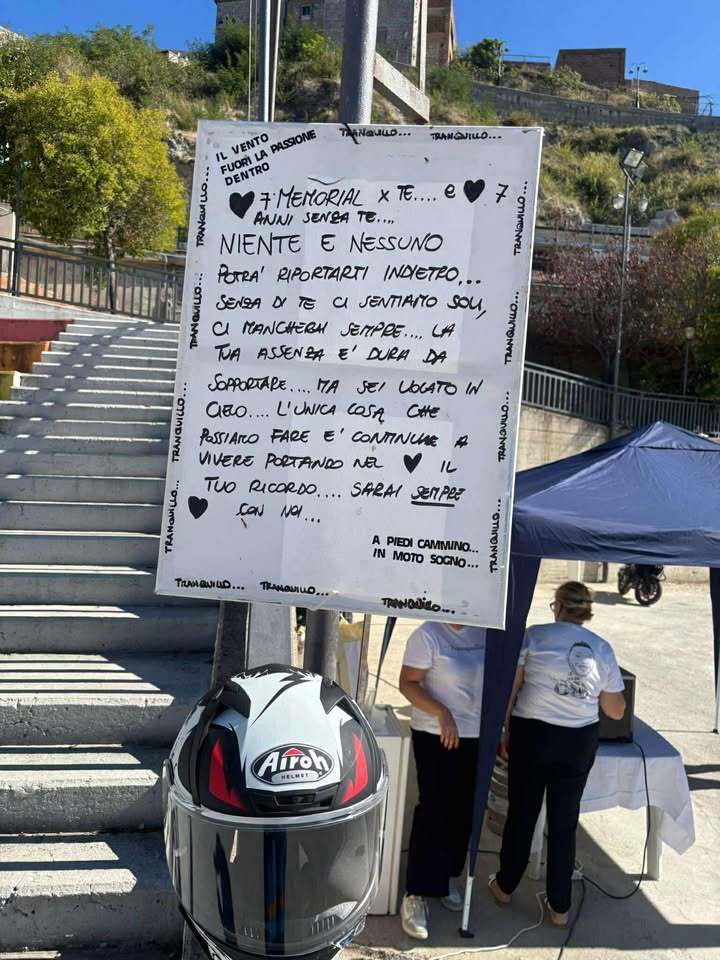 IL VENTO
FUORI LA PASSIONE
DENTRO
TRANQUILLO...
TRANQUILLO...
♥ 7° MEMORIAL x TE.... e ♥ 7
ANNI SENZA TE....
NIENTE E NESSUNO
POTRA' RIPORTARTI INDIETRO...
SENZA DI TE CI SENTIAMO SOLI,
CI MANCHERAI SEMPRE.... LA
TUA ASSENZA E' DURA DA
SOPPORTARE.... MA SEI VOLATO IN
CIELO.... L'UNICA COSA CHE
POSSIAMO FARE E' CONTINUARE A
VIVERE PORTANDO NEL ♥ IL
TUO RICORDO.... SARAI SEMPRE
♥ CON NOI...
A PIEDI CAMMINO...
IN MOTO SOGNO...
TRANQUILLO...
TRANQUILLO...
TRANQUILLO...
TRANQUILLO...
TRANQUILLO...
TRANQUILLO...
TRANQUILLO...
TRANQUILLO...
TRANQUILLO...
TRANQUILLO...
TRANQUILLO...
Airoh
HELMET